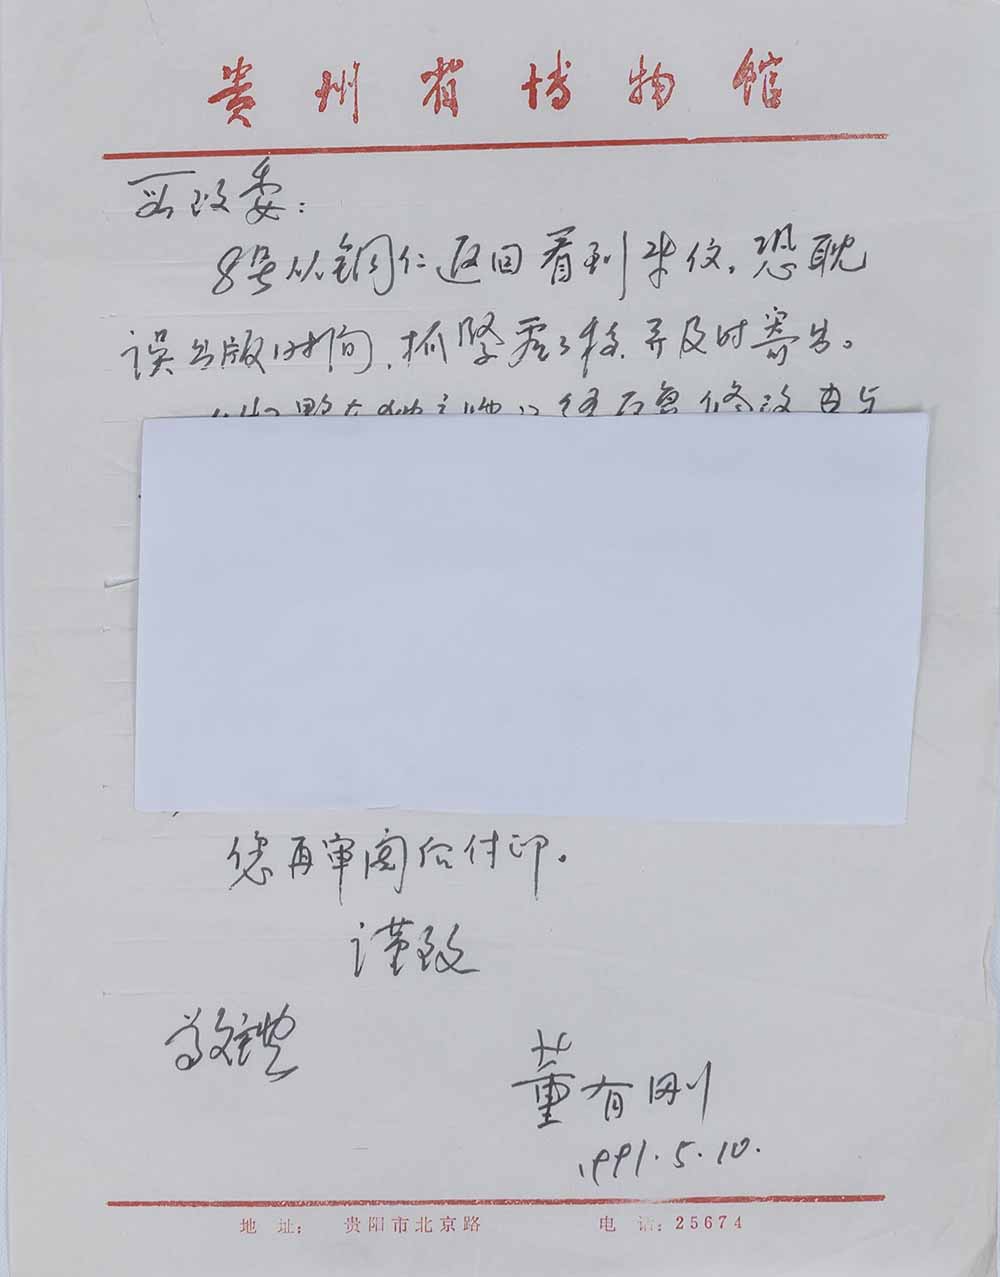 贵州省博物馆
政委：
8号从铜仁返回看到来仪，恐耽
误出版时间，抓紧看了校，并及时寄出。
您再审阅后付印。
谨致
敬礼
董有刚
1991.5.10.
地 址： 贵阳市北京路 电 话：25674